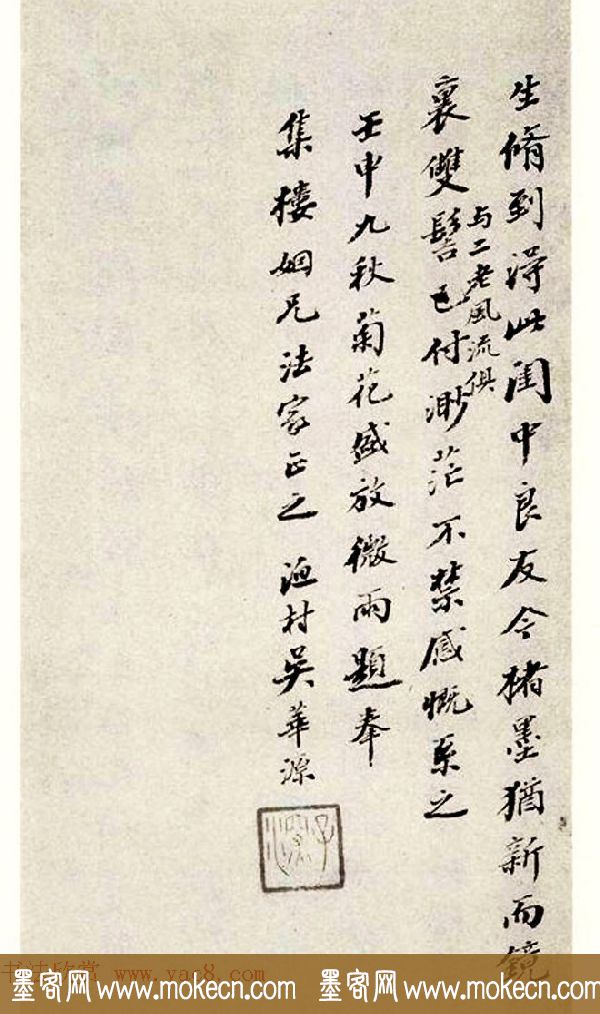 生脩到得此閨中良友今楮墨猶新而鏡
裏雙髻已付渺茫不禁感慨系之
与二老風流俱
壬申九秋菊花盛放微雨題奉
集樓姻兄法家正之 漁村吴華源
书法欣赏 www.yac8.com
墨客网 www.mokecn.com 墨客网 www.mokecn.com